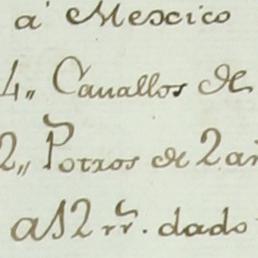 a' Mexcico
4,, Cauallos de
2,, Potros de 2 añ
a 12 rr.s dado